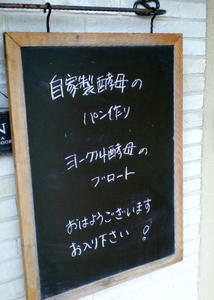 自家製酵母の
パン作り
ヨーグルト酵母の
ブロート
おはようございます
お入り下さい!